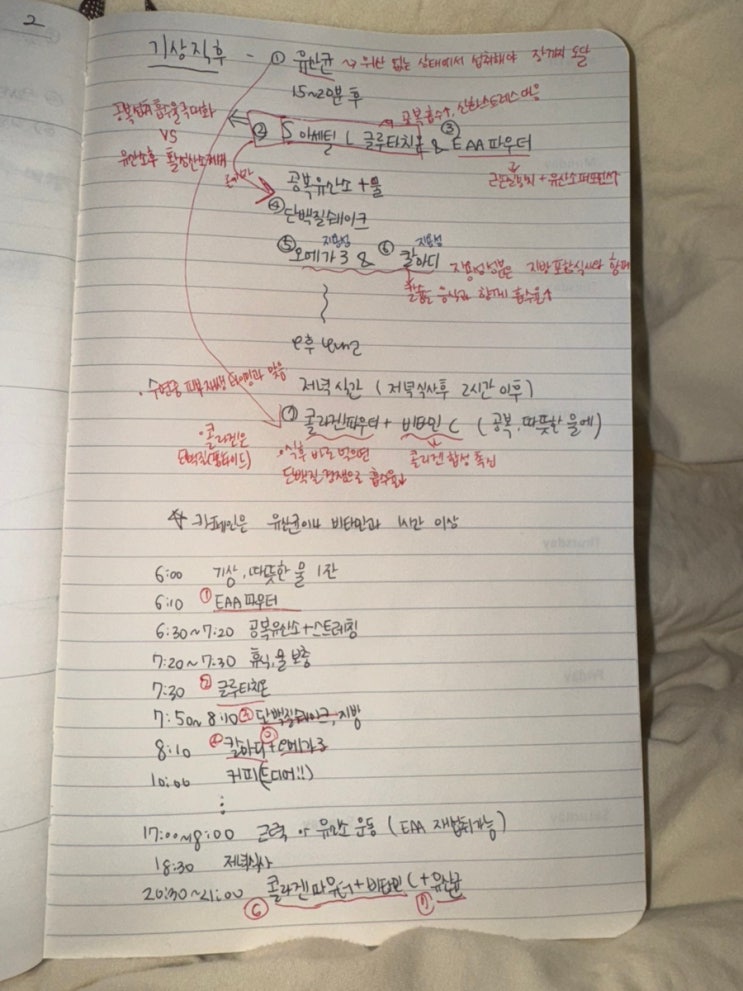 2
기상직후 - ① 유산균 → 위산 없는 상태에서 섭취해야 장까지 도달
15~20분 후
공복섭취 흡수율 극대화
VS
유산소후 활성산소제거
공복흡수↑, 산화스트레스 대응
② S 아세틸 L 글루타치온 & ③ EAA 파우더
근손실방지 + 유산소퍼포먼스
공복유산소 + 물
④ 단백질쉐이크
지용성 지용성
⑤ 오메가3 & ⑥ 칼마디
지용성성분은 지방 포함식사와 함께
칼슘은 음식과 함께 흡수율↑
오후
· 수면중 피부재생 타이밍과 맞음
저녁시간 (저녁식사후 2시간 이후)
⑦ 콜라겐파우더 + 비타민 C (공복, 따뜻한 물에)
· 콜라겐은
단백질(펩타이드)
· 식후 바로 먹으면
단백질 경쟁으로 흡수율↓
콜라겐 합성 촉진
☆ 카페인은 유산균이나 비타민과 1시간 이상
6:00 기상, 따뜻한 물 1잔
6:10 ① EAA 파우더
6:30~7:20 공복유산소+스트레칭
7:20~7:30 휴식, 물 보충
7:30 ② 글루타치온
7:50~8:10 ③ 단백질쉐이크, 지방
8:10 ④ 칼마디 + ⑤ 오메가3
10:00 커피(드디어!!)
⋮
17:00~18:00 근력 or 유산소 운동 (EAA 재섭취가능)
18:30 저녁식사
20:30~21:00 콜라겐파우더+비타민 C + 유산균
⑥ ⑦